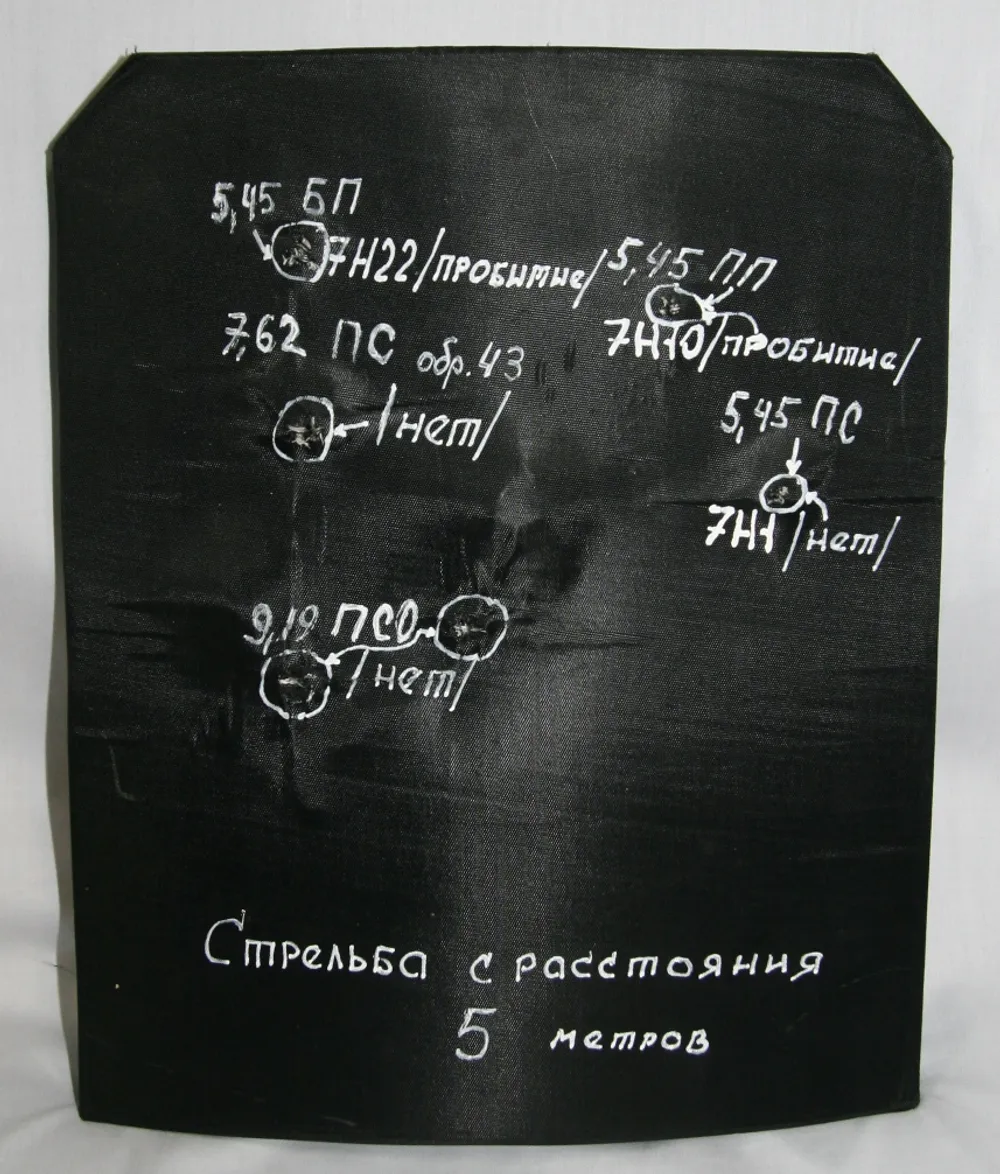 5,45 БП
7Н22/пробитие/
5,45 ПП
7Н10/пробитие/
7,62 ПС обр.43
/нет/
5,45 ПС
7Н1 /нет/
9,19 ПСО
/нет/
Стрельба с расстояния
5 метров